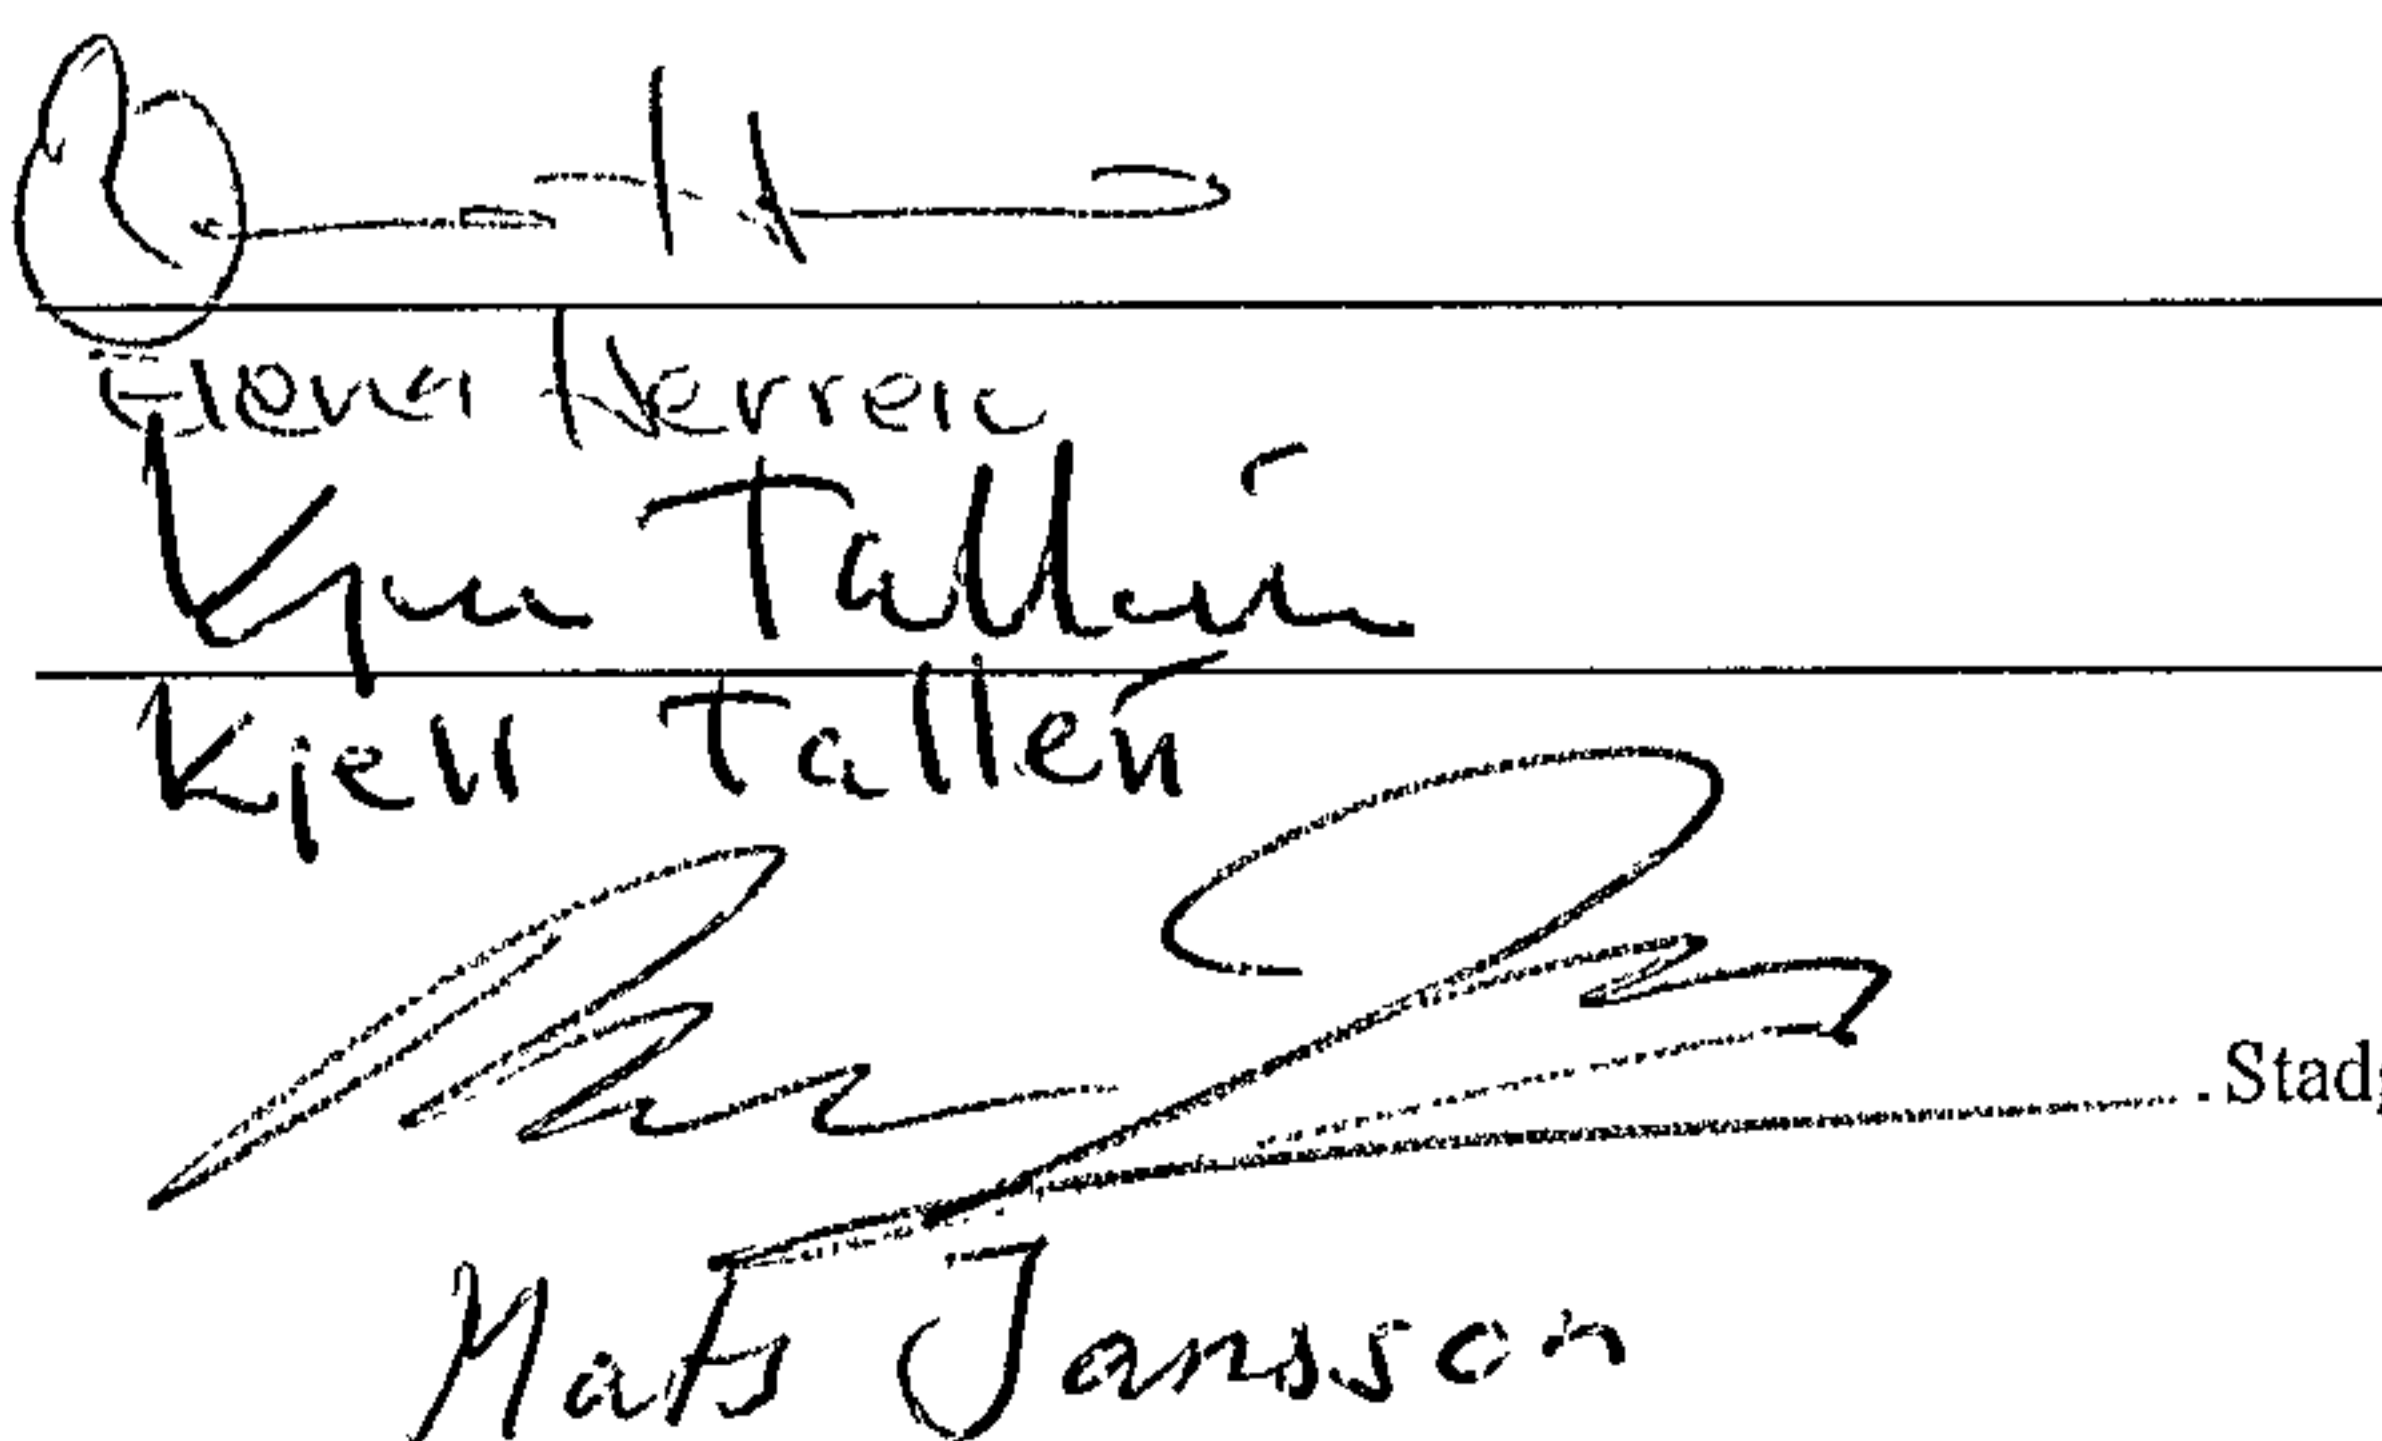 Elona Herreic
Kjell Tallén
Kjell Tallén
.Stad
Mats Jansson